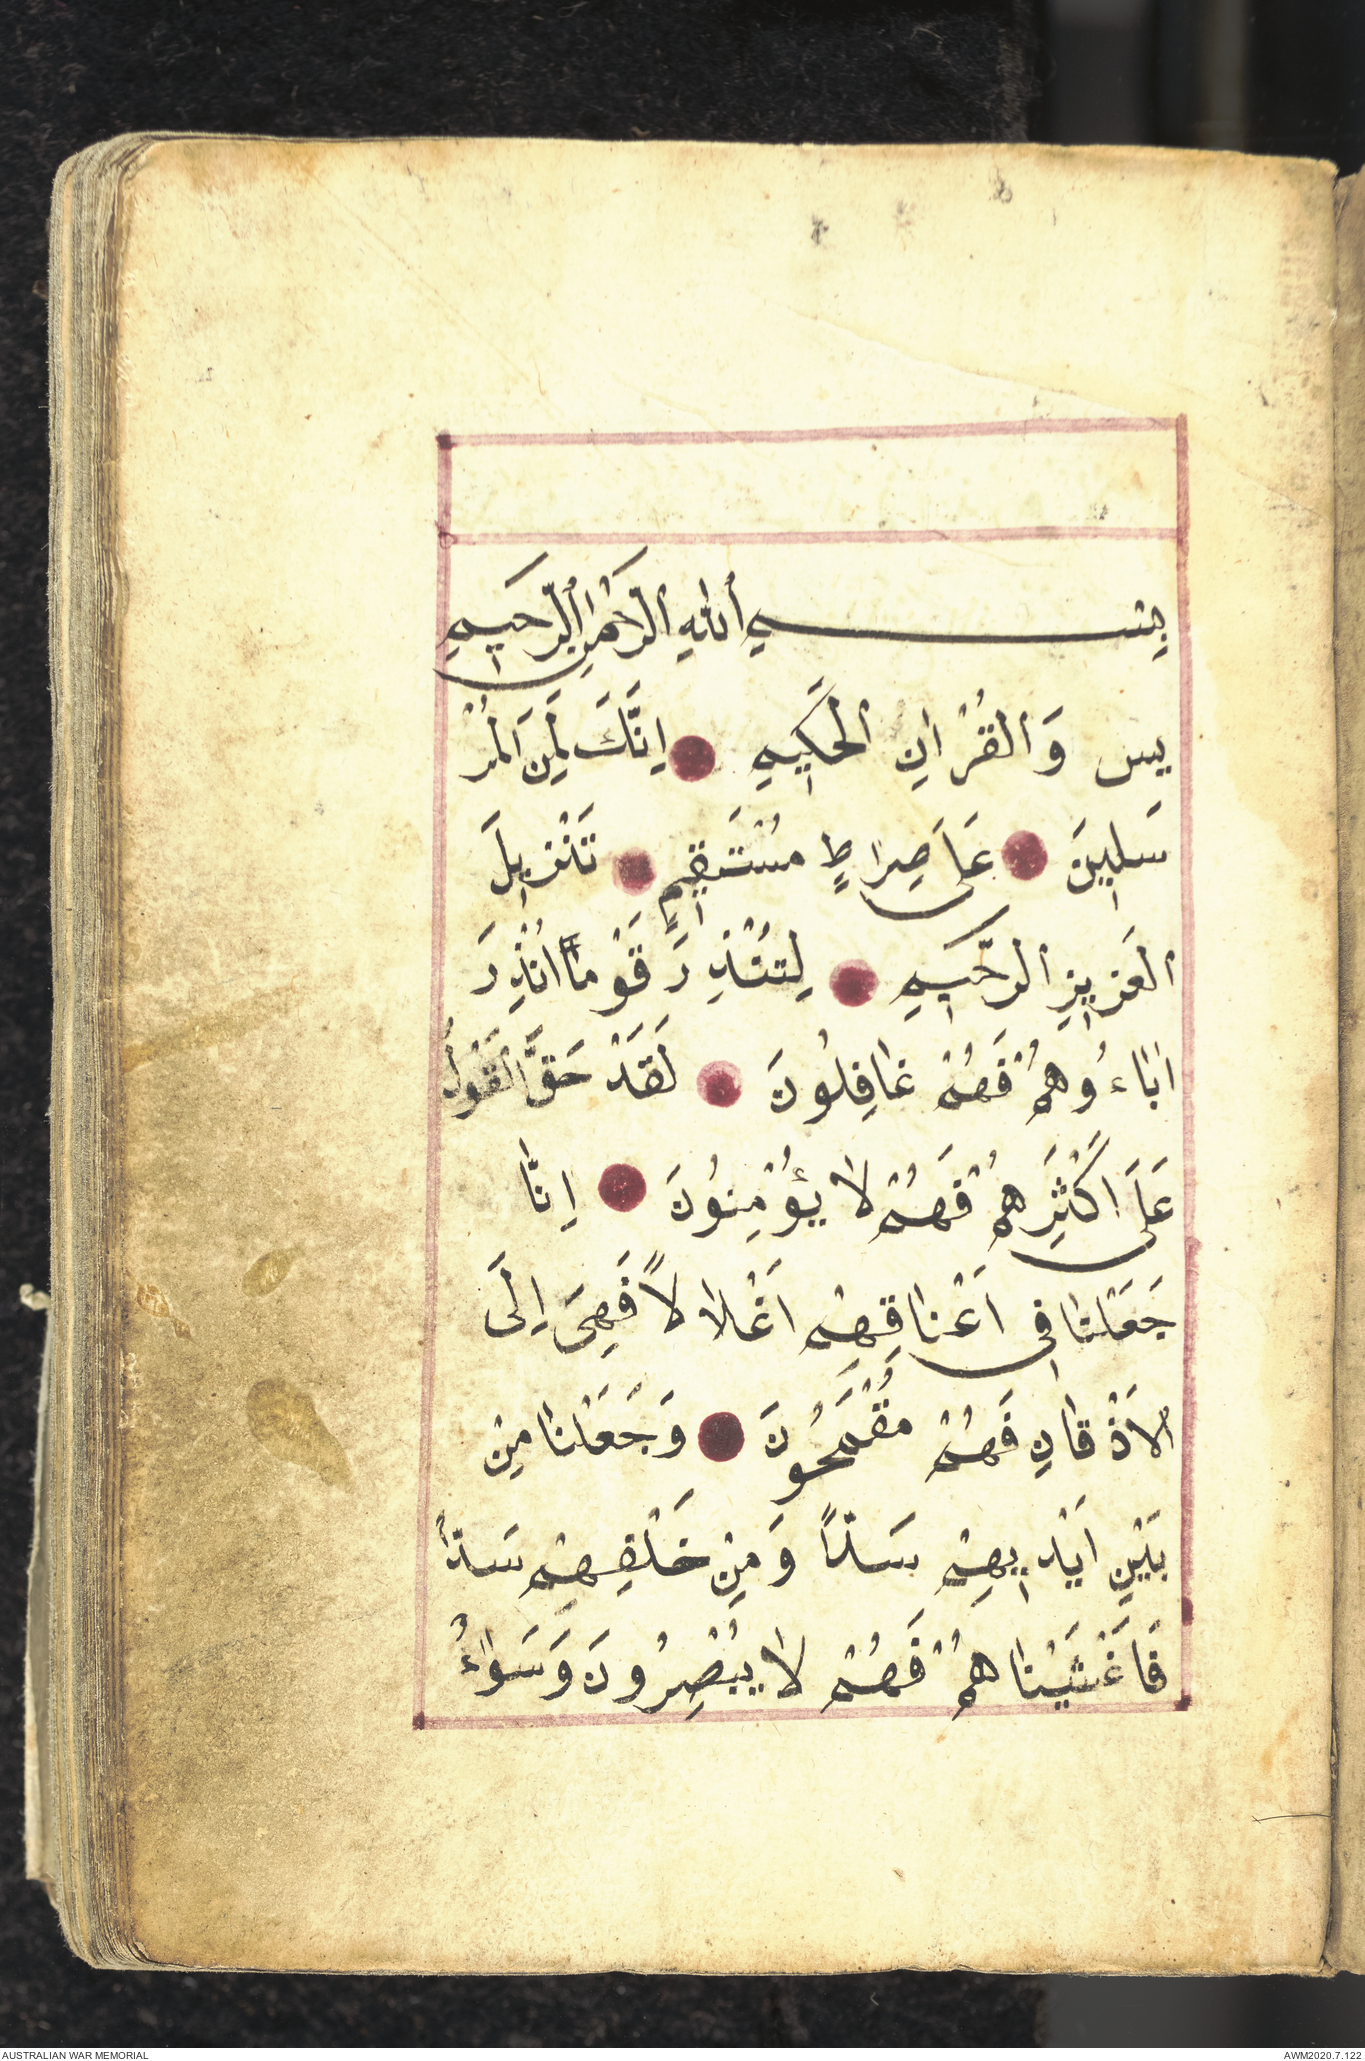 بِسْـــــــمِ ٱللّٰهِ ٱلرَّحْمٰنِ ٱلرَّحِيمِ
يس وَالْقُرْاٰنِ الْحَكِيمِ اِنَّكَ لَمِنَ الْمُرْ
سَلِينَ عَلَى صِرَاطٍ مُسْتَقِيمٍ تَنْزِيلَ
الْعَزِيزِ الرَّحِيمِ لِتُنْذِرَ قَوْمًا مَّا اُنْذِرَ
اٰبَاءُ وُهُمْ فَهُمْ غَافِلُونَ لَقَدْ حَقَّ الْقَوْلُ
عَلَى اَكْثَرِهِمْ فَهُمْ لَا يُؤْمِنُونَ اِنَّا
جَعَلْنَا فِى اَعْنَاقِهِمْ اَغْلَالًا فَهِىَ اِلَى
الْاَذْقَانِ فَهُمْ مُقْمَحُونَ وَجَعَلْنَا مِنْ
بَيْنِ اَيْدِيهِمْ سَدًّا وَمِنْ خَلْفِهِمْ سَدًّا
فَاَغْشَيْنَاهُمْ فَهُمْ لَا يُبْصِرُونَ وَسَوَاءٌ
AUSTRALIAN WAR MEMORIAL AWM2020.7.122